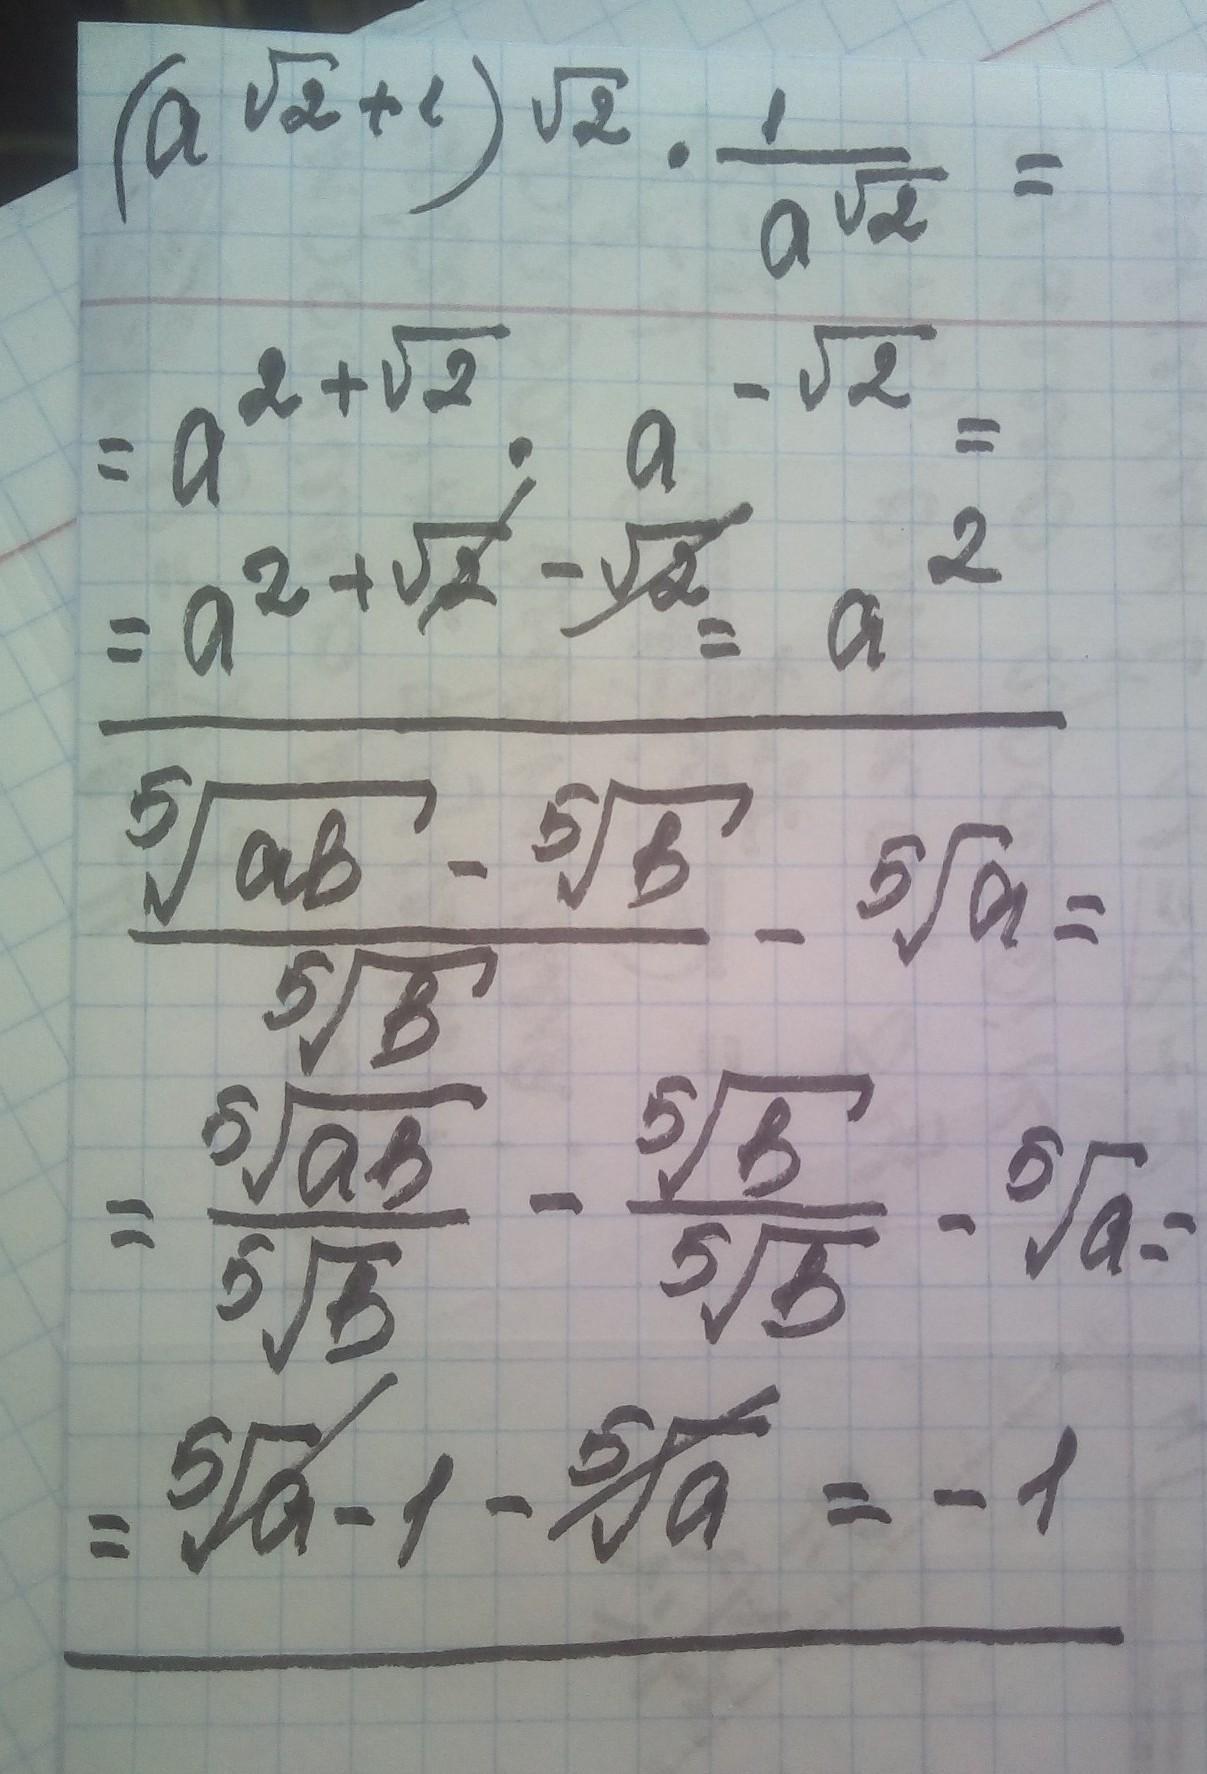 (a^{√2+1})^{√2} · 1/a^{√2} =
= a^{2+√2} · a^{-√2} =
= a^{2+√2-√2} = a^2
(⁵√(ab) - ⁵√b)/⁵√b - ⁵√a =
= ⁵√(ab)/⁵√b - ⁵√b/⁵√b - ⁵√a =
= ⁵√a - 1 - ⁵√a = -1